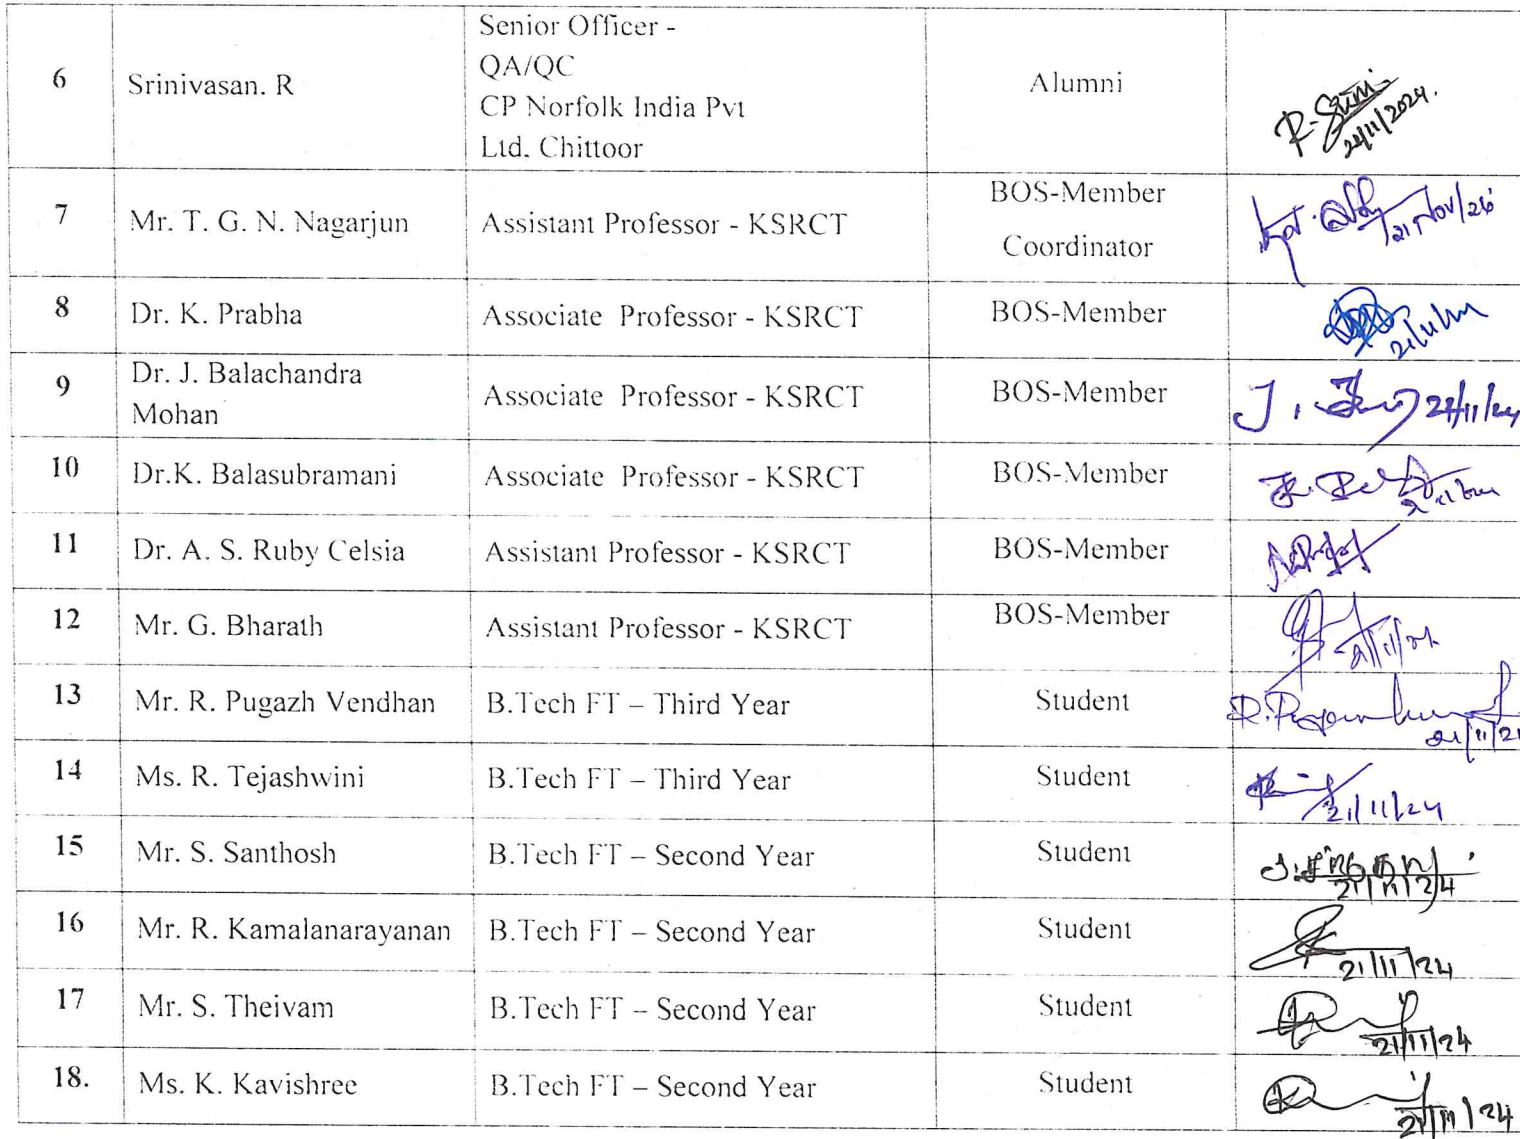 6 Srinivasan. R Senior Officer - Alumni
QA/QC
CP Norfolk India Pvt
Ltd. Chittoor
24/11/2024.
7 Mr. T. G. N. Nagarjun Assistant Professor - KSRCT BOS-Member
Coordinator
8 Dr. K. Prabha Associate Professor - KSRCT BOS-Member
9 Dr. J. Balachandra Associate Professor - KSRCT BOS-Member
Mohan
10 Dr.K. Balasubramani Associate Professor - KSRCT BOS-Member
11 Dr. A. S. Ruby Celsia Assistant Professor - KSRCT BOS-Member
12 Mr. G. Bharath Assistant Professor - KSRCT BOS-Member
13 Mr. R. Pugazh Vendhan B.Tech FT – Third Year Student
14 Ms. R. Tejashwini B.Tech FT – Third Year Student 21/11/24
15 Mr. S. Santhosh B.Tech FT – Second Year Student 21/11/24
16 Mr. R. Kamalanarayanan B.Tech FT – Second Year Student 21/11/24
17 Mr. S. Theivam B.Tech FT – Second Year Student 21/11/24
18. Ms. K. Kavishree B.Tech FT – Second Year Student 21/11/24